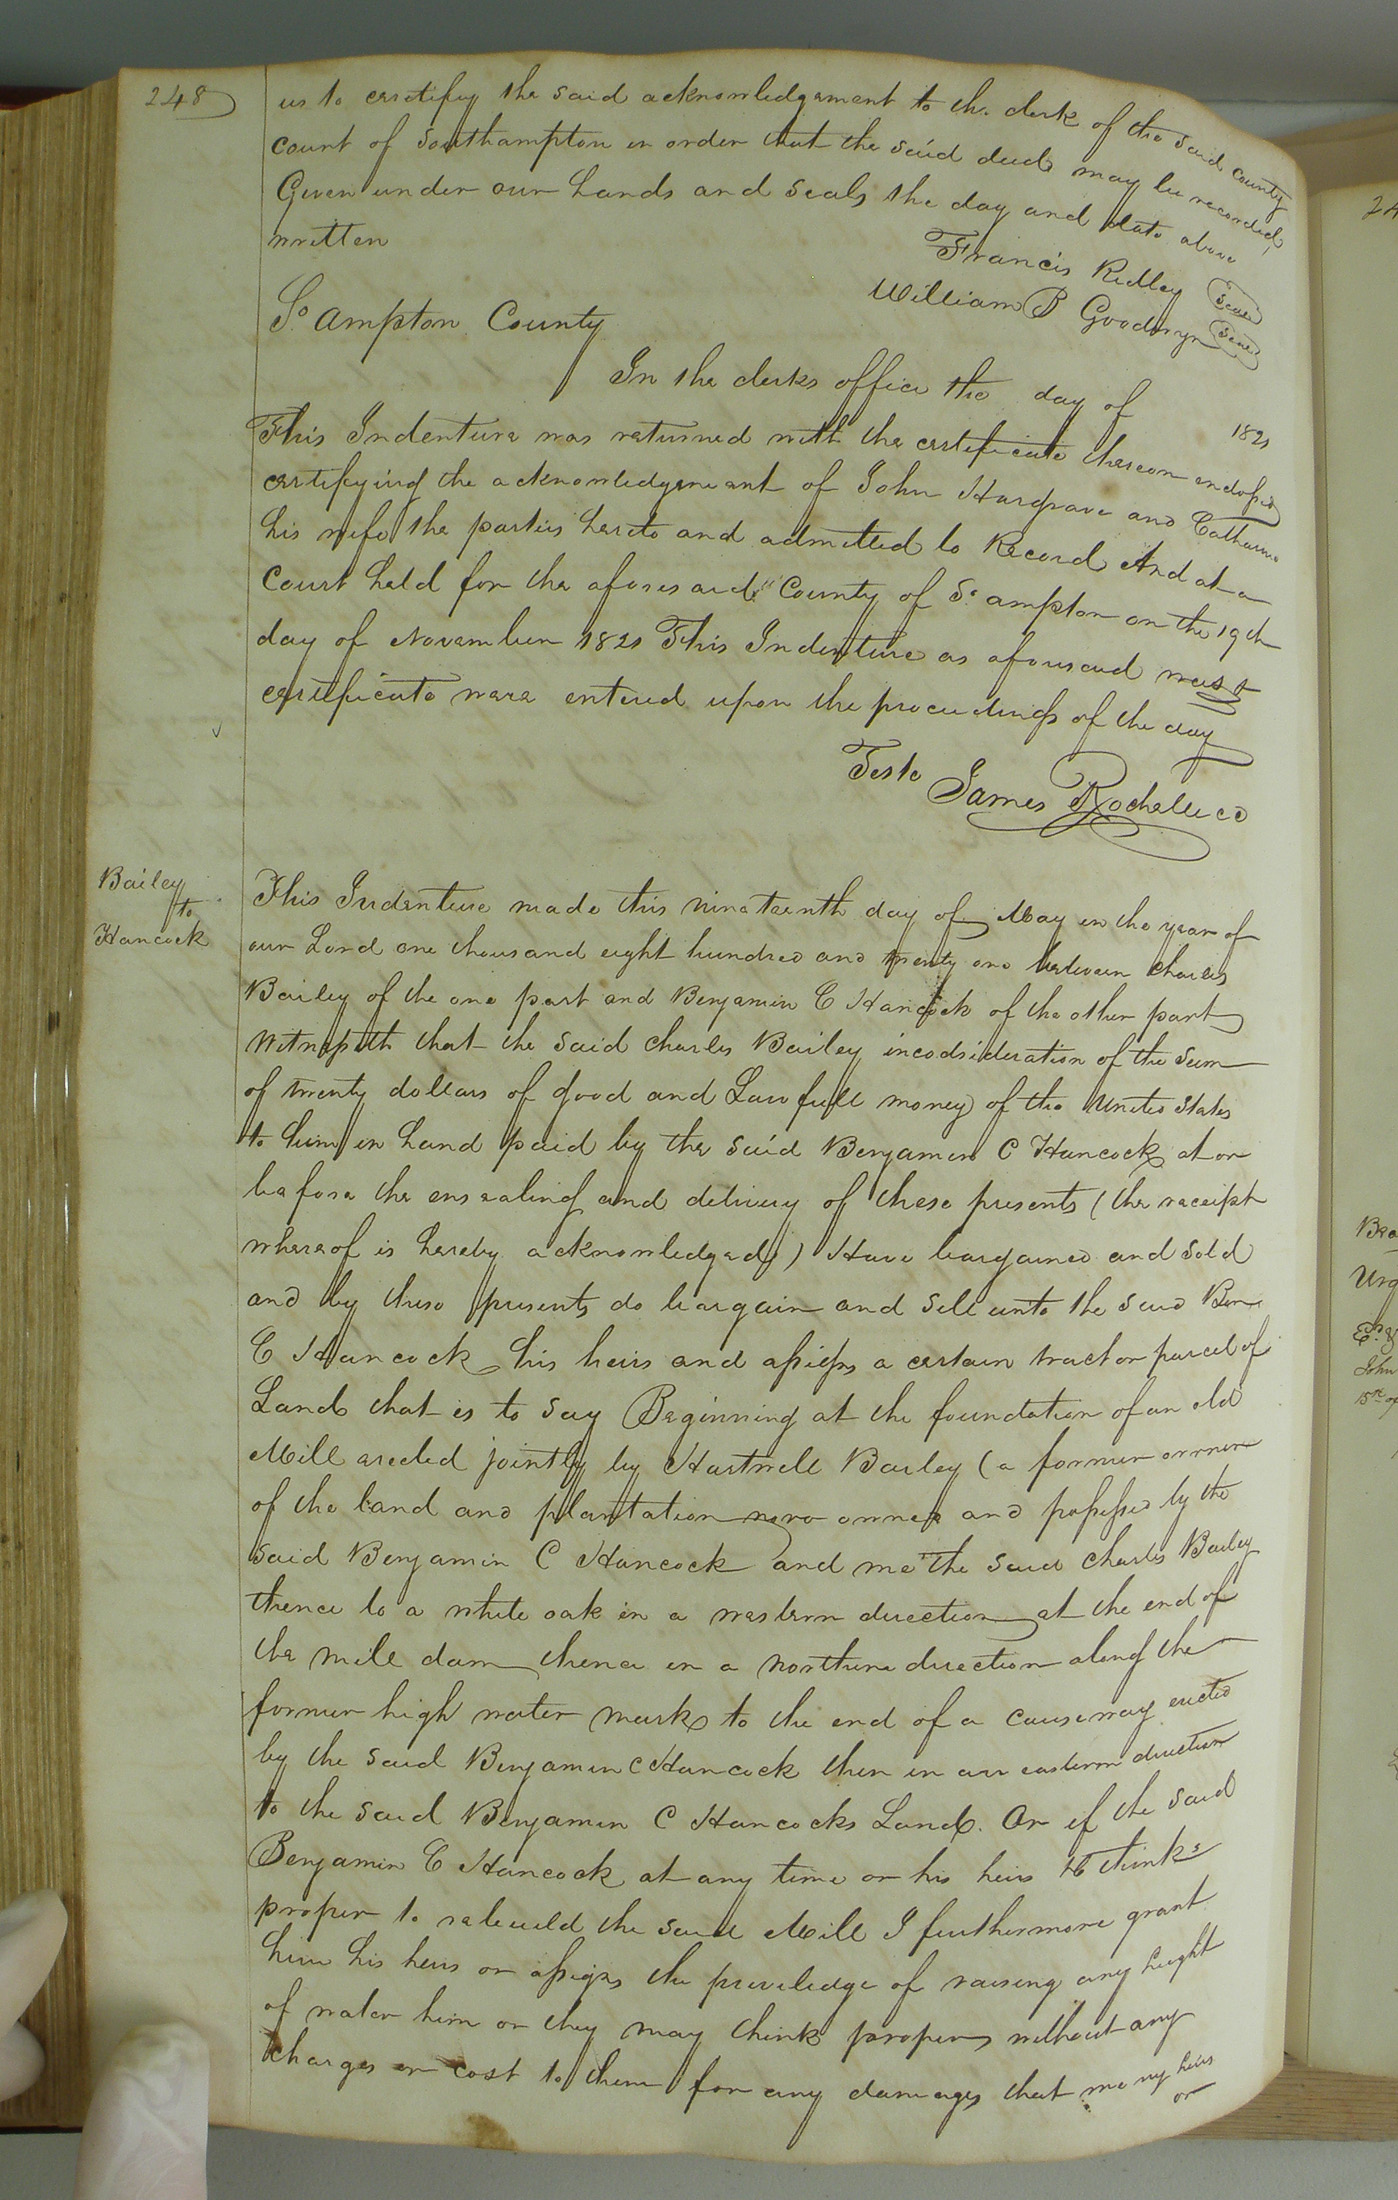 248
us to certify the said acknowledgement to the clerk of the said county
court of Southampton in order that the said deed may be recorded,
Given under our hands and seals the day and date above
written
Francis Ridley Seal
William B Goodwyn Seal
So. ampton County
In the clerks office the day of 1821
This Indenture was returned with the certificate thereon endorsed
certifying the acknowledgement of John Hargrave and Catharine
his wife the parties hereto and admitted to Record And at a
Court held for the aforesaid County of So. ampton on the 19th
day of November 1821 This Indenture as aforesaid was &
certificate were entered upon the proceedings of the day
Teste James Rochelle CC
Bailey
to
Hancock
This Indenture made this nineteenth day of May in the year of
our Lord one thousand eight hundred and twenty one between Charles
Bailey of the one part and Benjamin C Hancock of the other part
Witnesseth that the said Charles Bailey incodsideration of the Sum
of twenty dollars of good and Lawfull money of the United States
to him in hand paid by the said Benjamin C Hancock at or
before the ensealing and delivery of these presents (the receipt
whereof is hereby acknowledged) Have bargained and sold
and by these presents do bargain and sell unto the said Ben
C Hancock his heirs and assigns a certain tract or parcel of
Land that is to say Beginning at the foundation of an old
Mill erected jointly by Hartwell Bailey (a former owner
of the land and plantation now owned and possessed by the
said Benjamin C Hancock and me the said Charles Bailey
thence to a white oak in a western direction at the end of
the mill dam thence in a northern direction along the
former high water mark to the end of a causeway erected
by the said Benjamin C Hancock then in an eastern direction
to the said Benjamin C Hancocks Land. Or if the said
Benjamin C Hancock at any time or his heirs thinks
proper to rebuild the said Mill I furthermore grant
him his heirs or assigns the priviledge of raising any height
of water him or they may think proper without any
charges or cost to them for any damages that me my heirs
or